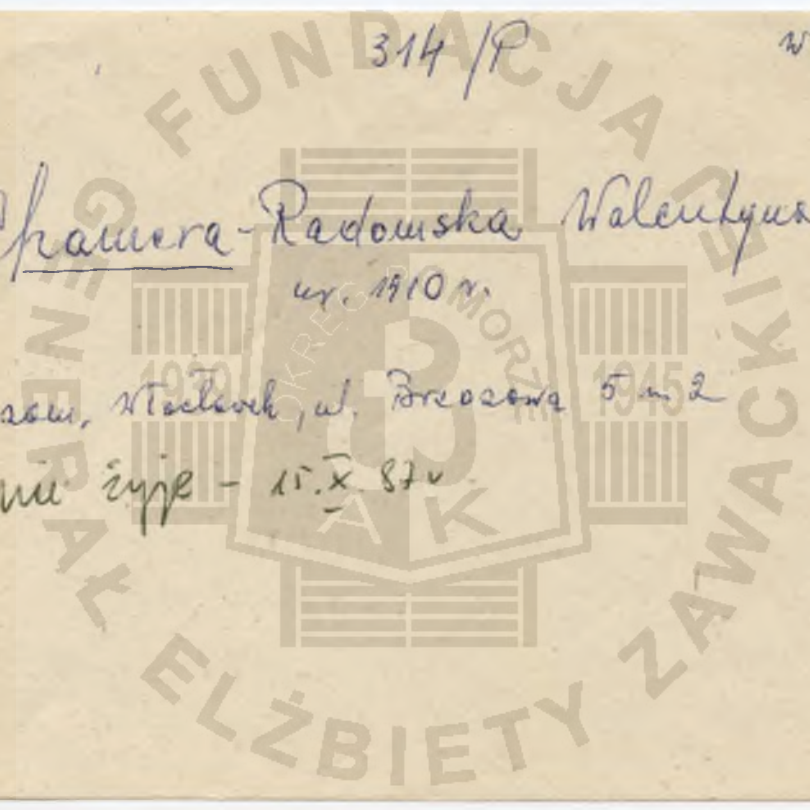 314/P w
Chamera-Radomska Walentyna
ur. 1910 r.
zam. Włocławek, ul. Brzozowa 5 m 2
nie żyje - 15.X 87 r
FUNDACJA GENERAŁ ELŻBIETY ZAWACKIEJ
OKRĘG POMORZE
1939 1945
AK